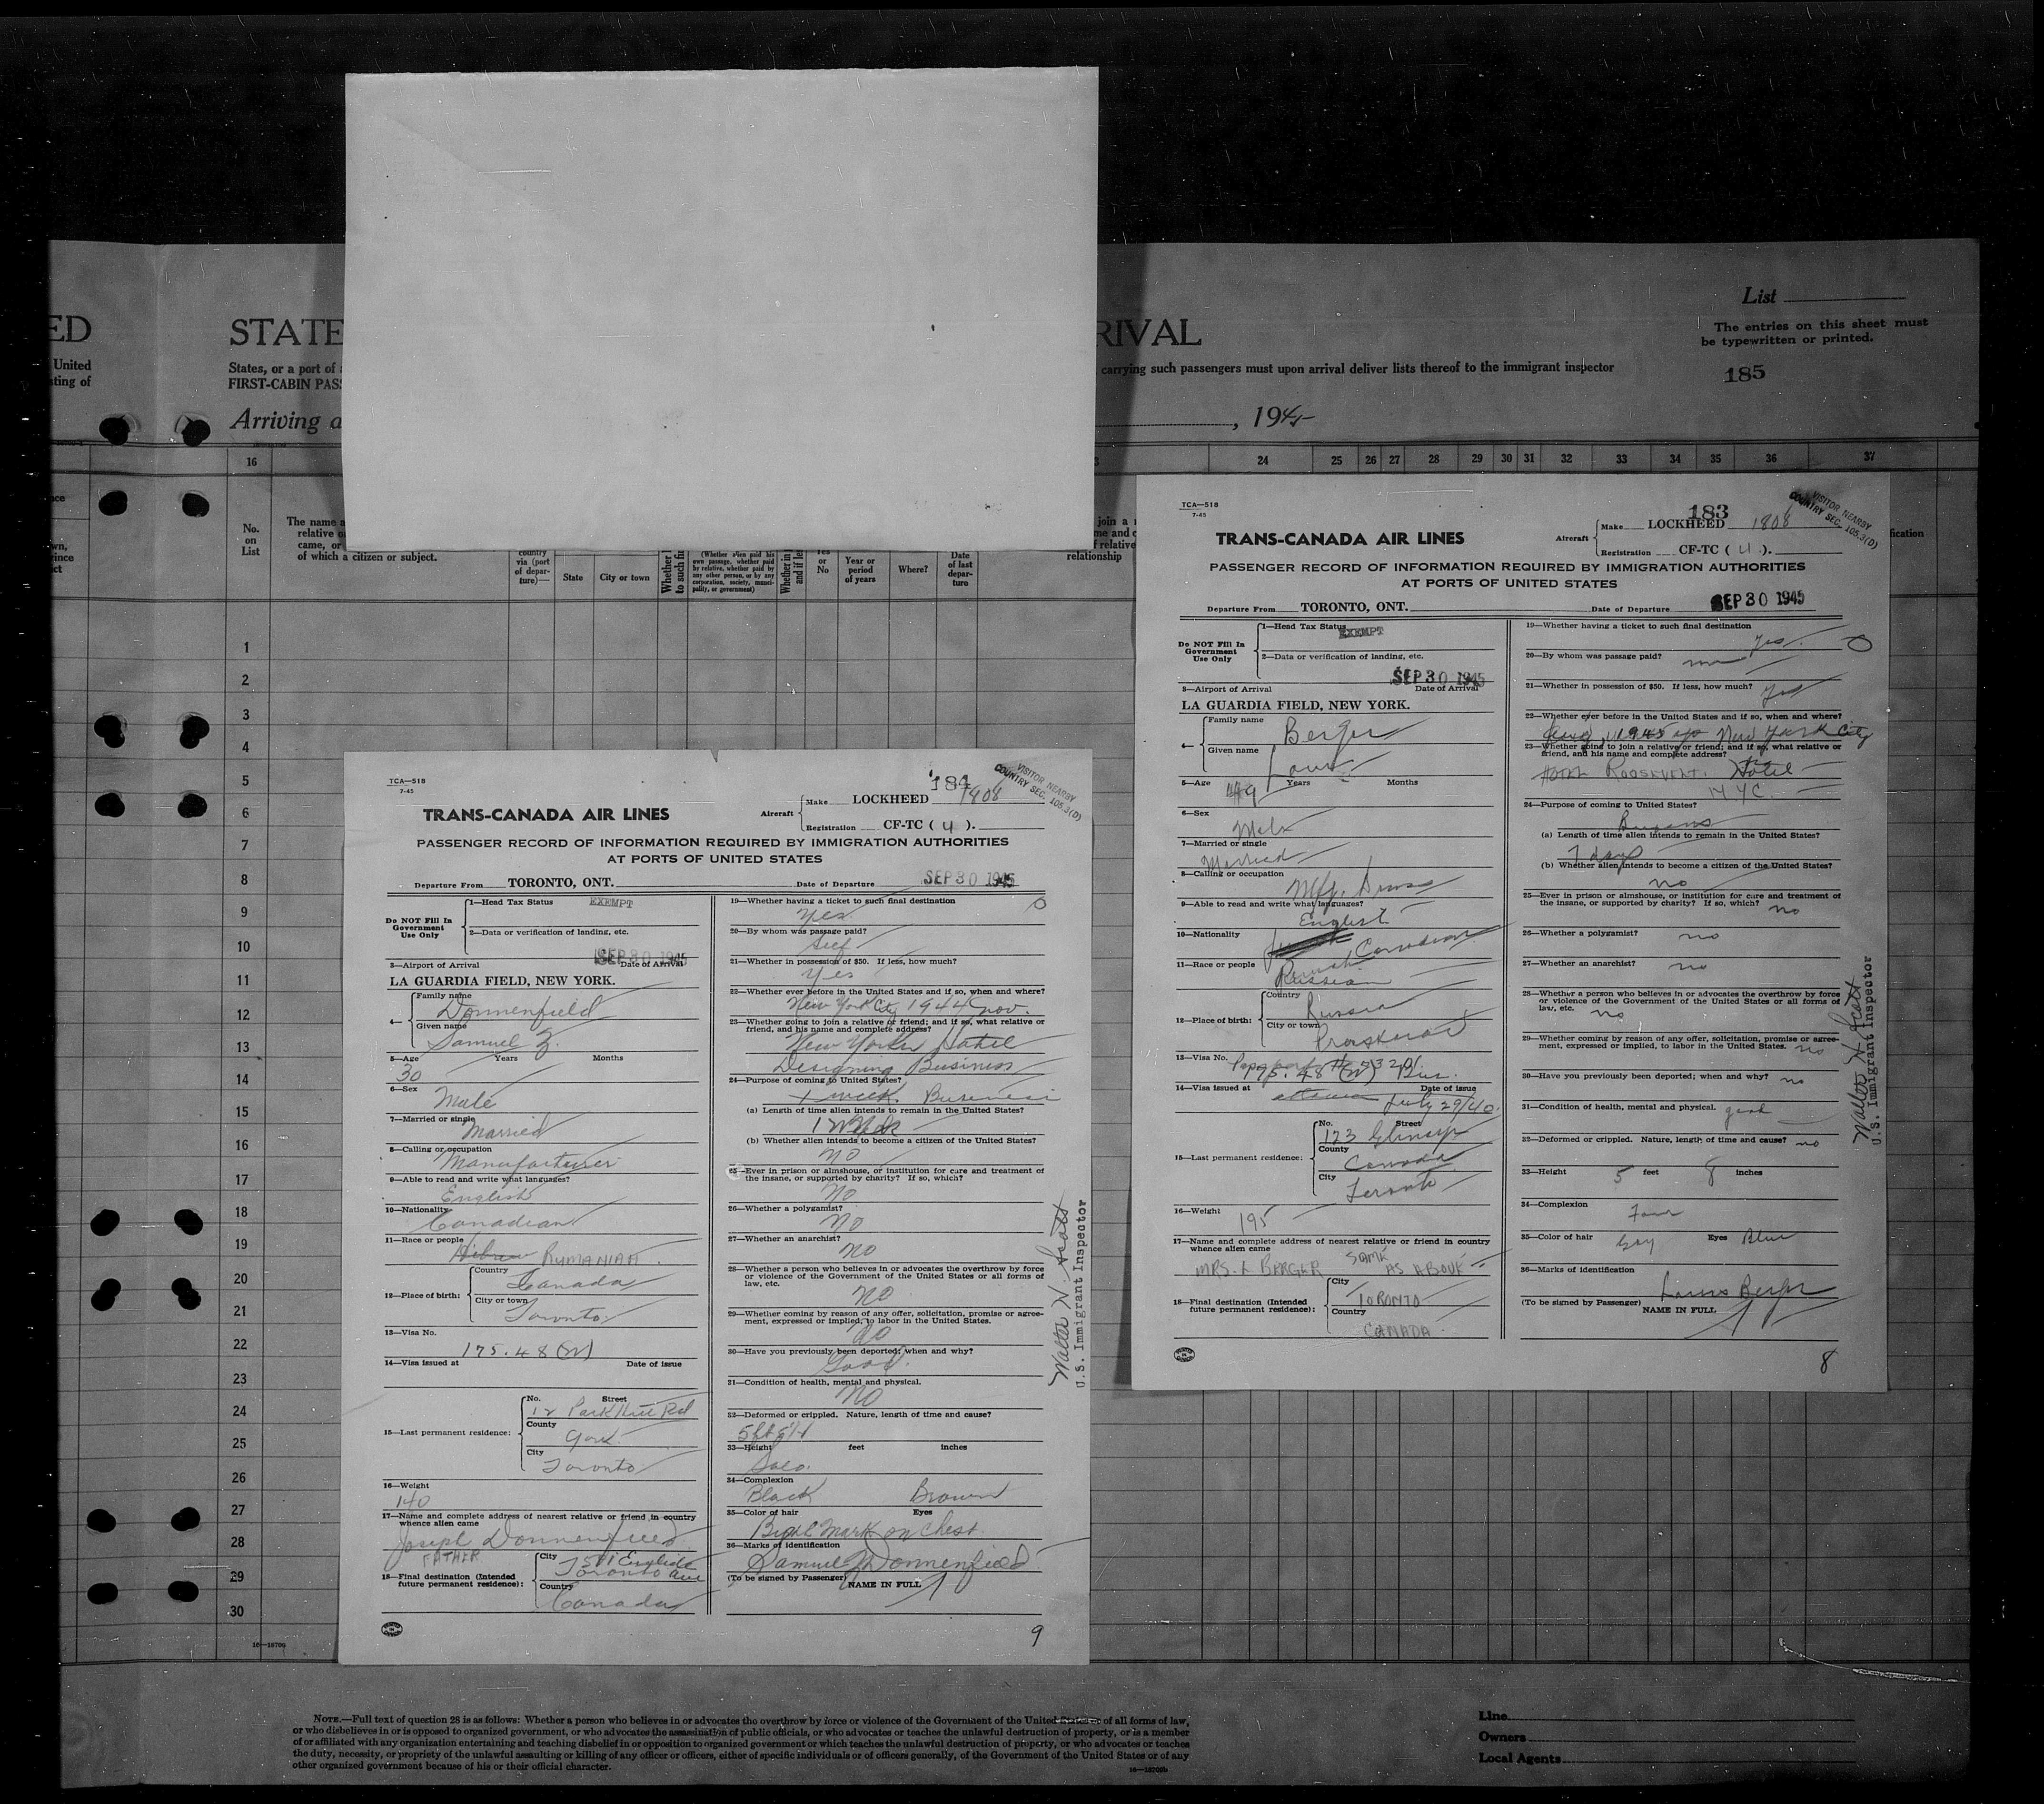 ED STATE
RIVAL
List
The entries on this sheet must
be typewritten or printed.
United
States, or a port of
carrying such passengers must upon arrival deliver lists thereof to the immigrant inspector
ting of
FIRST-CABIN PAS
185
Arriving a
, 1945
16
24 25 26 27 28 29 30 31 32 33 34 35 36 37
No.
on
List
The name a
relative o
came, or
of which a citizen or subject.
country
via (port
of depar-
ture)—
State
City or town
(Whether alien paid his
own passage, whether paid
by relative, whether paid by
any other person, or by any
corporation, society, munici-
pality, or government)
Yes
or
No
Year or
period
of years
Where?
Date
of last
depar-
ture
join a
relationship
1
2
3
4
5
6
7
8
9
10
11
12
13
14
15
16
17
18
19
20
21
22
23
24
25
26
27
28
29
30
16—18709
TCA—518
7-45
184
VISITOR NEARBY
COUNTRY SEC. 105.3(D)
TRANS-CANADA AIR LINES
Aircraft
Make LOCKHEED 1808
Registration CF-TC ( 4 ).
PASSENGER RECORD OF INFORMATION REQUIRED BY IMMIGRATION AUTHORITIES
AT PORTS OF UNITED STATES
Departure From TORONTO, ONT. Date of Departure SEP 30 1945
Do NOT Fill In
Government
Use Only
1—Head Tax Status EXEMPT
2—Data or verification of landing, etc.
SEP 30 1945
3—Airport of Arrival Date of Arrival
LA GUARDIA FIELD, NEW YORK.
4—
Family name
Donnenfield
Given name
Samuel Z.
5—Age Years Months
30
6—Sex
Male
7—Married or single
Married
8—Calling or occupation
Manufacturer
9—Able to read and write what languages?
English
10—Nationality
Canadian
11—Race or people
Hebrew RUMANIAN
12—Place of birth:
Country
Canada
City or town
Toronto
13—Visa No.
175.48 (W)
14—Visa issued at Date of issue
15—Last permanent residence:
No. Street
12 Park Hill Rd
County
York
City
Toronto
16—Weight
140
17—Name and complete address of nearest relative or friend in country
whence alien came
Joseph Donnenfield
FATHER
18—Final destination (Intended
future permanent residence):
City
Toronto
Country
Canada
19—Whether having a ticket to such final destination
Yes
20—By whom was passage paid?
Self
21—Whether in possession of $50. If less, how much?
Yes
22—Whether ever before in the United States and if so, when and where?
New York City 1944 Nov.
23—Whether going to join a relative or friend; and if so, what relative or
friend, and his name and complete address?
New Yorker Hotel
Designing Business
24—Purpose of coming to United States?
1 week. Business
(a) Length of time alien intends to remain in the United States?
1 Week
(b) Whether alien intends to become a citizen of the United States?
No
25—Ever in prison or almshouse, or institution for care and treatment of
the insane, or supported by charity? If so, which?
No
26—Whether a polygamist?
No
27—Whether an anarchist?
No
28—Whether a person who believes in or advocates the overthrow by force
or violence of the Government of the United States or all forms of
law, etc.
No
29—Whether coming by reason of any offer, solicitation, promise or agree-
ment, expressed or implied, to labor in the United States.
No
30—Have you previously been deported; when and why?
Good.
31—Condition of health, mental and physical.
No
32—Deformed or crippled. Nature, length of time and cause?
33—Height feet inches
34—Complexion
Black Brown
35—Color of hair Eyes
Birth Mark on Chest
36—Marks of identification
Samuel Z Donnenfield
(To be signed by Passenger) NAME IN FULL
Walter N. Scott
U.S. Immigrant Inspector
9
TCA—518
7-45
183
VISITOR NEARBY
COUNTRY SEC. 105.3(D)
TRANS-CANADA AIR LINES
Aircraft
Make LOCKHEED 1808
Registration CF-TC ( 4 ).
PASSENGER RECORD OF INFORMATION REQUIRED BY IMMIGRATION AUTHORITIES
AT PORTS OF UNITED STATES
Departure From TORONTO, ONT. Date of Departure SEP 30 1945
Do NOT Fill In
Government
Use Only
1—Head Tax Status EXEMPT
2—Data or verification of landing, etc.
SEP 30 1945
3—Airport of Arrival Date of Arrival
LA GUARDIA FIELD, NEW YORK.
4—
Family name
Berger
Given name
Louis
5—Age Years Months
49
6—Sex
Male
7—Married or single
Married
8—Calling or occupation
Mfg. Dress
9—Able to read and write what languages?
English
10—Nationality
Canadian
11—Race or people
Russian
12—Place of birth:
Country
Russia
City or town
13—Visa No.
175.48 (W) Bus.
14—Visa issued at Date of issue
Ottawa July 29/40
15—Last permanent residence:
No. Street
173
County
Canada
City
Toronto
16—Weight
195
17—Name and complete address of nearest relative or friend in country
whence alien came
MRS. L BERGER SAME AS ABOVE
18—Final destination (Intended
future permanent residence):
City
TORONTO
Country
CANADA
19—Whether having a ticket to such final destination
Yes.
20—By whom was passage paid?
me
21—Whether in possession of $50. If less, how much?
Yes
22—Whether ever before in the United States and if so, when and where?
1945 New York City
23—Whether going to join a relative or friend; and if so, what relative or
friend, and his name and complete address?
ROOSEVELT. Hotel
N.Y.C
24—Purpose of coming to United States?
Business
(a) Length of time alien intends to remain in the United States?
7 days
(b) Whether alien intends to become a citizen of the United States?
no
25—Ever in prison or almshouse, or institution for care and treatment of
the insane, or supported by charity? If so, which? no
26—Whether a polygamist? no
27—Whether an anarchist? no
28—Whether a person who believes in or advocates the overthrow by force
or violence of the Government of the United States or all forms of
law, etc. no
29—Whether coming by reason of any offer, solicitation, promise or agree-
ment, expressed or implied, to labor in the United States. no
30—Have you previously been deported; when and why? no
31—Condition of health, mental and physical. good
32—Deformed or crippled. Nature, length of time and cause? no
33—Height 5 feet 8 inches
34—Complexion
Fair
35—Color of hair Gray Eyes Blue
36—Marks of identification
Louis Berger
(To be signed by Passenger) NAME IN FULL
Walter N. Scott
U.S. Immigrant Inspector
8
NOTE.—Full text of question 28 is as follows: Whether a person who believes in or advocates the overthrow by force or violence of the Government of the United States or of all forms of law,
or who disbelieves in or is opposed to organized government, or who advocates the assassination of public officials, or who advocates or teaches the unlawful destruction of property, or is a member
of or affiliated with any organization entertaining and teaching disbelief in or opposition to organized government or which teaches the unlawful destruction of property, or who advocates or teaches
the duty, necessity, or propriety of the unlawful assaulting or killing of any officer or officers, either of specific individuals or of officers generally, of the Government of the United States or of any
other organized government because of his or their official character.
16—18709b
Line
Owners
Local Agents